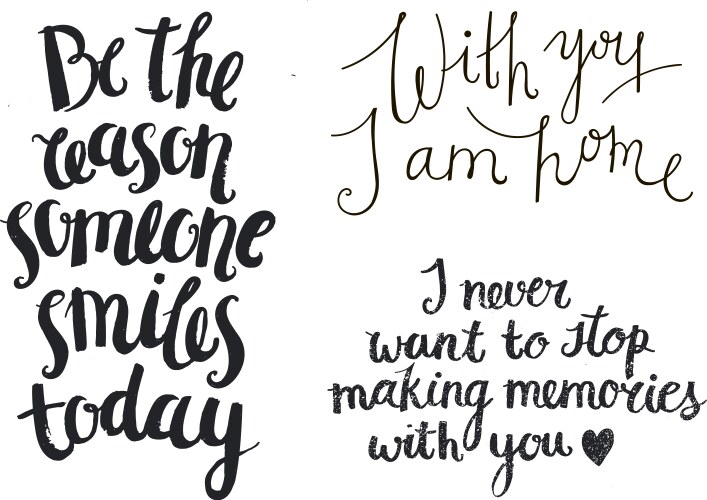 Be the
reason
someone
smiles
today
With you
I am home
I never
want to stop
making memories
with you